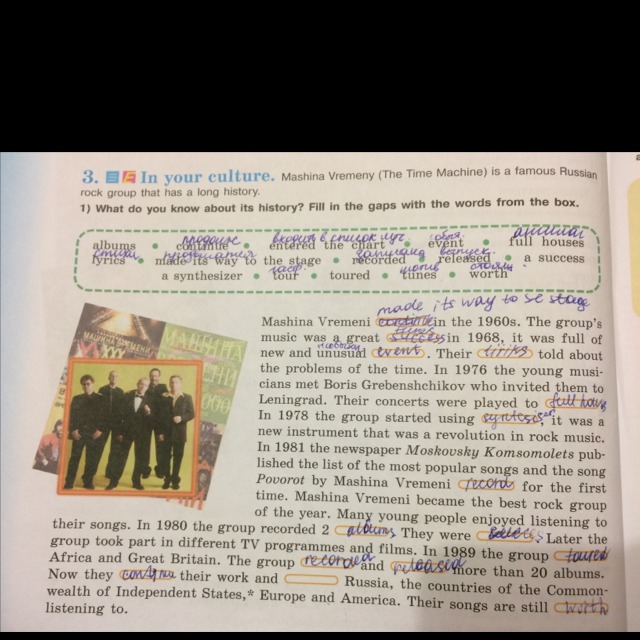 3. In your culture. Mashina Vremeny (The Time Machine) is a famous Russian
rock group that has a long history.
1) What do you know about its history? Fill in the gaps with the words from the box.
продолж. входить в список луч
albums • continue • entered the chart • event • full houses
стихи
lyrics • made its way to the stage • recorded • released • a success
a synthesizer • tour • toured • tunes • worth
made its way to se stage
Mashina Vremeni continue in the 1960s. The group's
tunes
music was a great success in 1968, it was full of
new and unusual event. Their liriks told about
the problems of the time. In 1976 the young musi-
cians met Boris Grebenshchikov who invited them to
Leningrad. Their concerts were played to full hous
In 1978 the group started using it was a
new instrument that was a revolution in rock music.
In 1981 the newspaper Moskovsky Komsomolets pub-
lished the list of the most popular songs and the song
Povorot by Mashina Vremeni record for the first
time. Mashina Vremeni became the best rock group
of the year. Many young people enjoyed listening to
their songs. In 1980 the group recorded 2 albums. They were Later the
group took part in different TV programmes and films. In 1989 the group toured
Africa and Great Britain. The group recorded and released more than 20 albums.
Now they continue their work and Russia, the countries of the Common-
wealth of Independent States,* Europe and America. Their songs are still worth
listening to.
МАШИНА ВРЕМЕНИ
XXX
МАШИНА